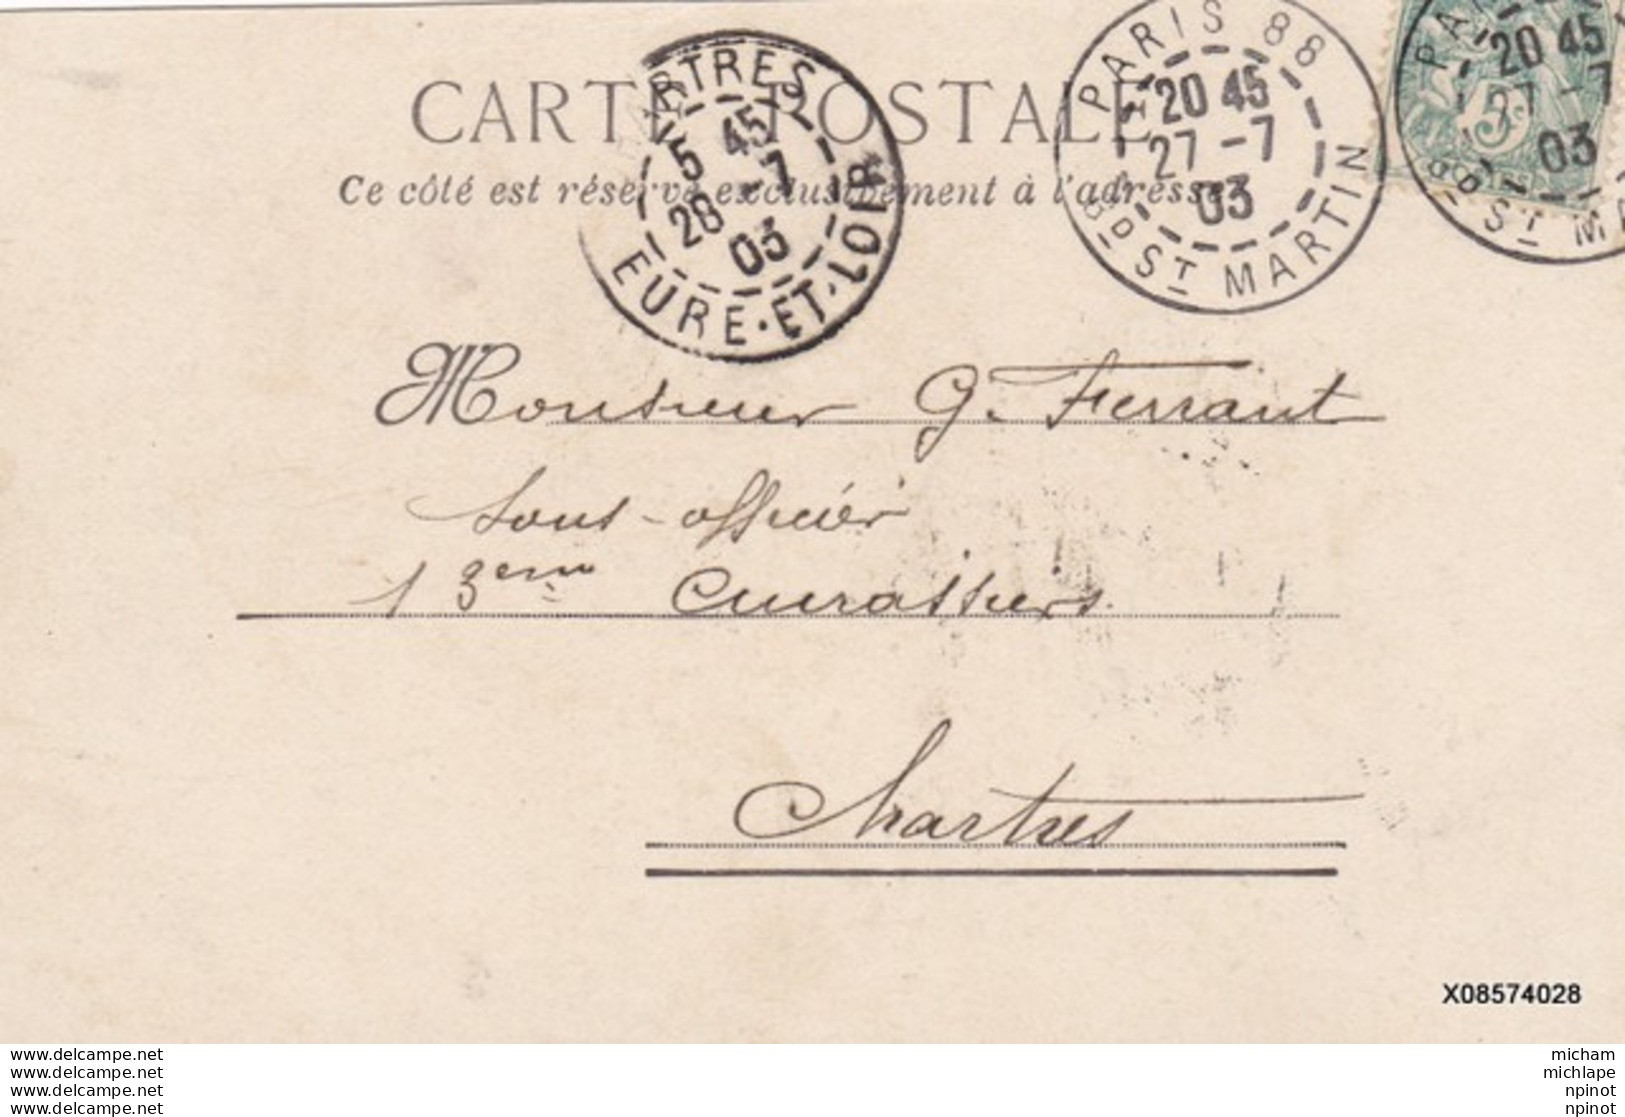 CARTE POSTALE
Ce côté est réservé exclusivement à l'adresse
ARTRES
5 45
28 -7
03
EURE·ET·LOIR
PARIS 88
20 45
27 -7
03
Bd St MARTIN
PAR
20 45
27 -7
03
Bd St MA
5c
POSTES
Monsieur G. Ferrant
Sous-officier
13eme Cuirassiers
Chartres
X08574028
www.delcampe.net
www.delcampe.net
www.delcampe.net
www.delcampe.net
micham
michlape
npinot
npinot